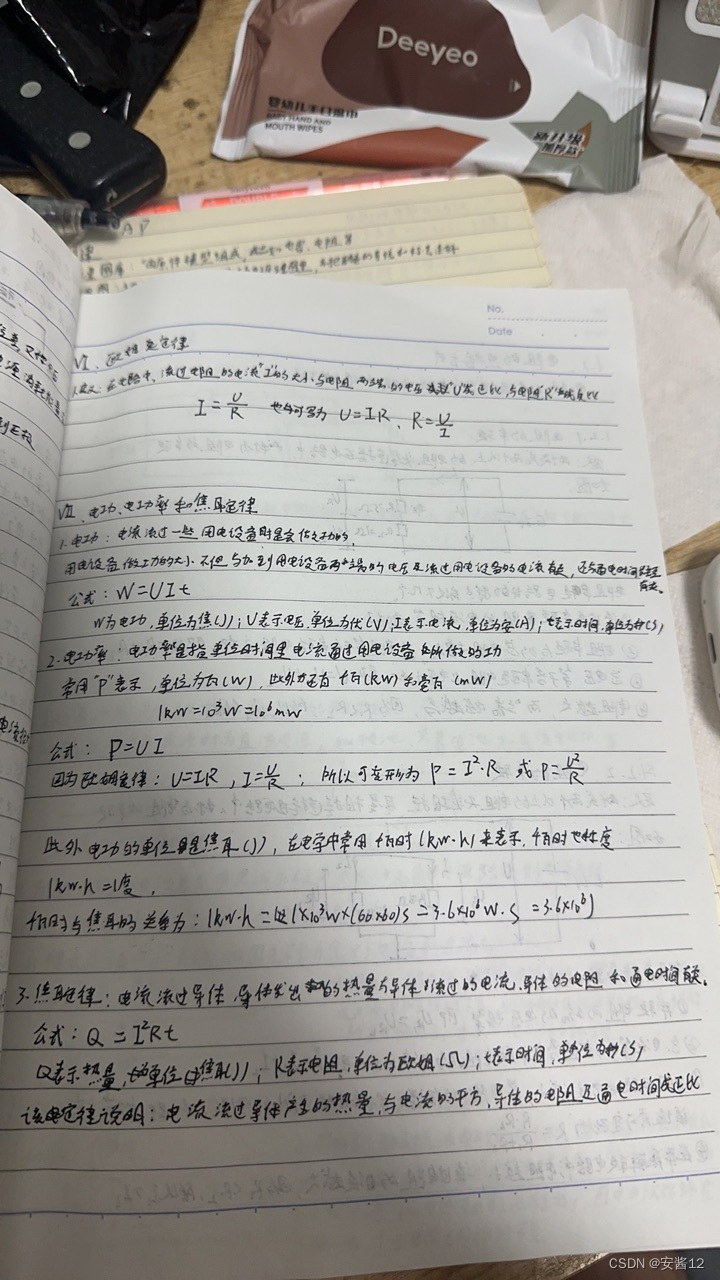 Deeyeo
婴幼儿手口湿巾
BABY HAND AND
MOUTH WIPES
No.
Date
VI. 欧姆定律
1.定义: 在电路中, 流过电阻的电流"I"的大小与电阻两端的电压"U"成正比, 与电阻"R"成反比
I=U/R 也可写为 U=IR、R=U/I
VII. 电功、电功率和焦耳定律
1.电功: 电流流过一些用电设备时是会做功的,
用电设备做功的大小不但与加到用电设备两端的电压及流过用电设备的电流有关, 还与通电时间长短
有关。
公式: W=UIt
W为电功, 单位为焦(J); U表示电压, 单位为伏(V); I表示电流, 单位为安(A); t表示时间, 单位为秒(s)
2.电功率: 电功率是指单位时间里电流通过用电设备所做的功
常用"P"表示, 单位为瓦(W), 此外还有千瓦(kW)和毫瓦(mW)
1kW=10³W=10⁶mW
公式: P=UI
因为欧姆定律: U=IR, I=U/R; 所以可变形为 P=I²·R 或 P=U²/R
此外电功的单位是焦耳(J), 在电学中常用千瓦时(kW·h)来表示, 千瓦时也称度
1kW·h=1度,
千瓦时与焦耳的关系为: 1kW·h=1×10³W×(60×60)s=3.6×10⁶W·s=3.6×10⁶J
3.焦耳定律: 电流流过导体, 导体发出的热量与导体流过的电流、导体的电阻和通电时间有关。
公式: Q=I²Rt
Q表示热量, 单位焦耳(J); R表示电阻, 单位为欧姆(Ω); t表示时间, 单位为秒(s)
该定律说明: 电流流过导体产生的热量, 与电流的平方, 导体的电阻及通电时间成正比
CSDN @安酱12